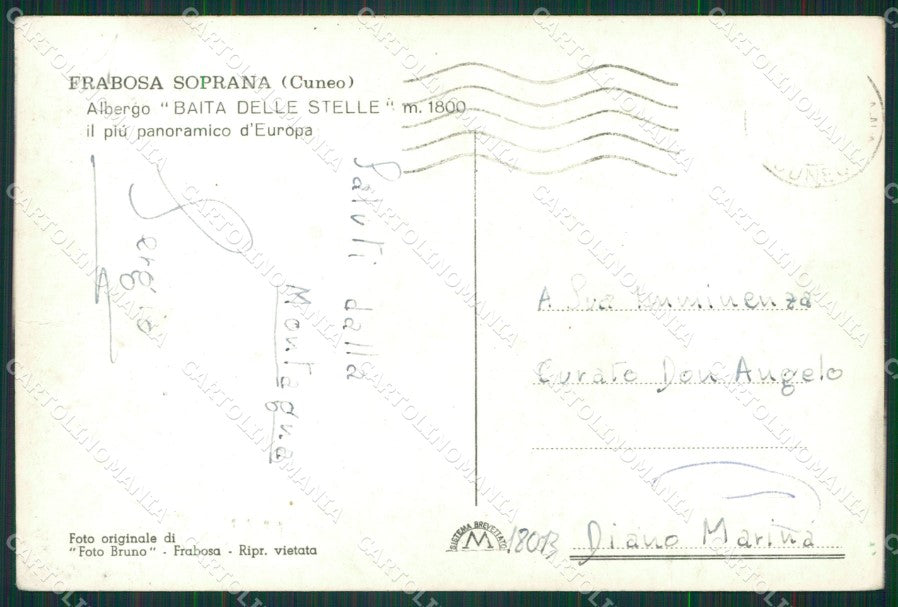 FRABOSA SOPRANA (Cuneo)
Albergo "BAITA DELLE STELLE" m. 1800
il più panoramico d'Europa
Saluti dalla
Montagna
Sergio
A Sua Emminenza
Curato Don Angelo
Diano Marina
18013
SISTEMA BREVETTATO
M
Foto originale di
"Foto Bruno" - Frabosa - Ripr. vietata
CUNEO
CARTOLINOMANIA